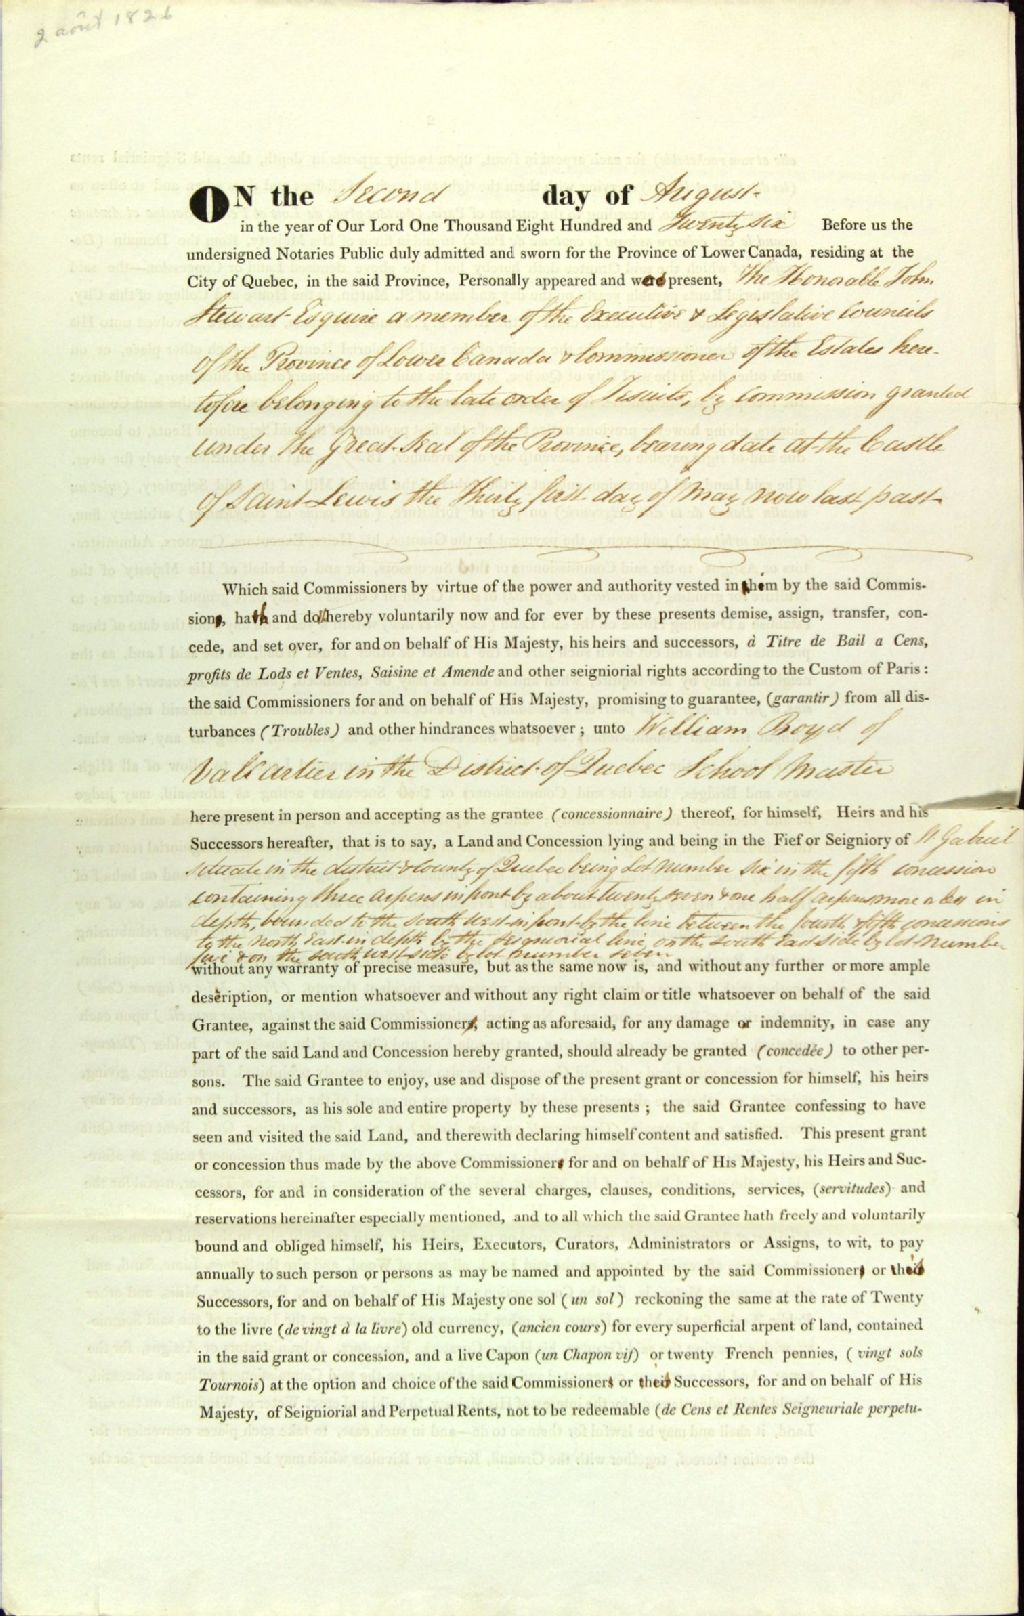 2 août 1826
ON the Second day of August
in the year of Our Lord One Thousand Eight Hundred and Twenty six Before us the
undersigned Notaries Public duly admitted and sworn for the Province of Lower Canada, residing at the
City of Quebec, in the said Province, Personally appeared and was present, The Honorable John
Stewart Esquire a member of the Executive & Legislative Councils
of the Province of Lower Canada & Commissioner of the Estates here-
tofore belonging to the late order of Jesuits, by commission granted
under the Great Seal of the Province, bearing date at the Castle
of Saint Lewis the Thirty first day of May now last past
Which said Commissioners by virtue of the power and authority vested in him by the said Commis-
sion, hath and doth hereby voluntarily now and for ever by these presents demise, assign, transfer, con-
cede, and set over, for and on behalf of His Majesty, his heirs and successors, à Titre de Bail a Cens,
profits de Lods et Ventes, Saisine et Amende and other seigniorial rights according to the Custom of Paris :
the said Commissioners for and on behalf of His Majesty, promising to guarantee, (garantir) from all dis-
turbances (Troubles) and other hindrances whatsoever ; unto William Boyd of
Vallcartier in the District of Quebec School Master
here present in person and accepting as the grantee (concessionnaire) thereof, for himself, Heirs and his
Successors hereafter, that is to say, a Land and Concession lying and being in the Fief or Seigniory of St Gabriel
situate in the district & County of Quebec being Lot Number Six in the fifth concession
containing three arpens in front by about twenty seven & one half arpens more or less in
depth, bounded to the South West in front by the line between the fourth & fifth concessions
to the North East in depth by the seigniorial line, on the South East side by lot Number
five & on the South west side by lot number seven
without any warranty of precise measure, but as the same now is, and without any further or more ample
description, or mention whatsoever and without any right claim or title whatsoever on behalf of the said
Grantee, against the said Commissioner, acting as aforesaid, for any damage or indemnity, in case any
part of the said Land and Concession hereby granted, should already be granted (concedée) to other per-
sons. The said Grantee to enjoy, use and dispose of the present grant or concession for himself, his heirs
and successors, as his sole and entire property by these presents ; the said Grantee confessing to have
seen and visited the said Land, and therewith declaring himself content and satisfied. This present grant
or concession thus made by the above Commissioner for and on behalf of His Majesty, his Heirs and Suc-
cessors, for and in consideration of the several charges, clauses, conditions, services, (servitudes) and
reservations hereinafter especially mentioned, and to all which the said Grantee hath freely and voluntarily
bound and obliged himself, his Heirs, Executors, Curators, Administrators or Assigns, to wit, to pay
annually to such person or persons as may be named and appointed by the said Commissioner or his
Successors, for and on behalf of His Majesty one sol (un sol) reckoning the same at the rate of Twenty
to the livre (de vingt à la livre) old currency, (ancien cours) for every superficial arpent of land, contained
in the said grant or concession, and a live Capon (un Chapon vif) or twenty French pennies, ( vingt sols
Tournois) at the option and choice of the said Commissioner or their Successors, for and on behalf of His
Majesty, of Seigniorial and Perpetual Rents, not to be redeemable (de Cens et Rentes Seigneuriale perpetu-